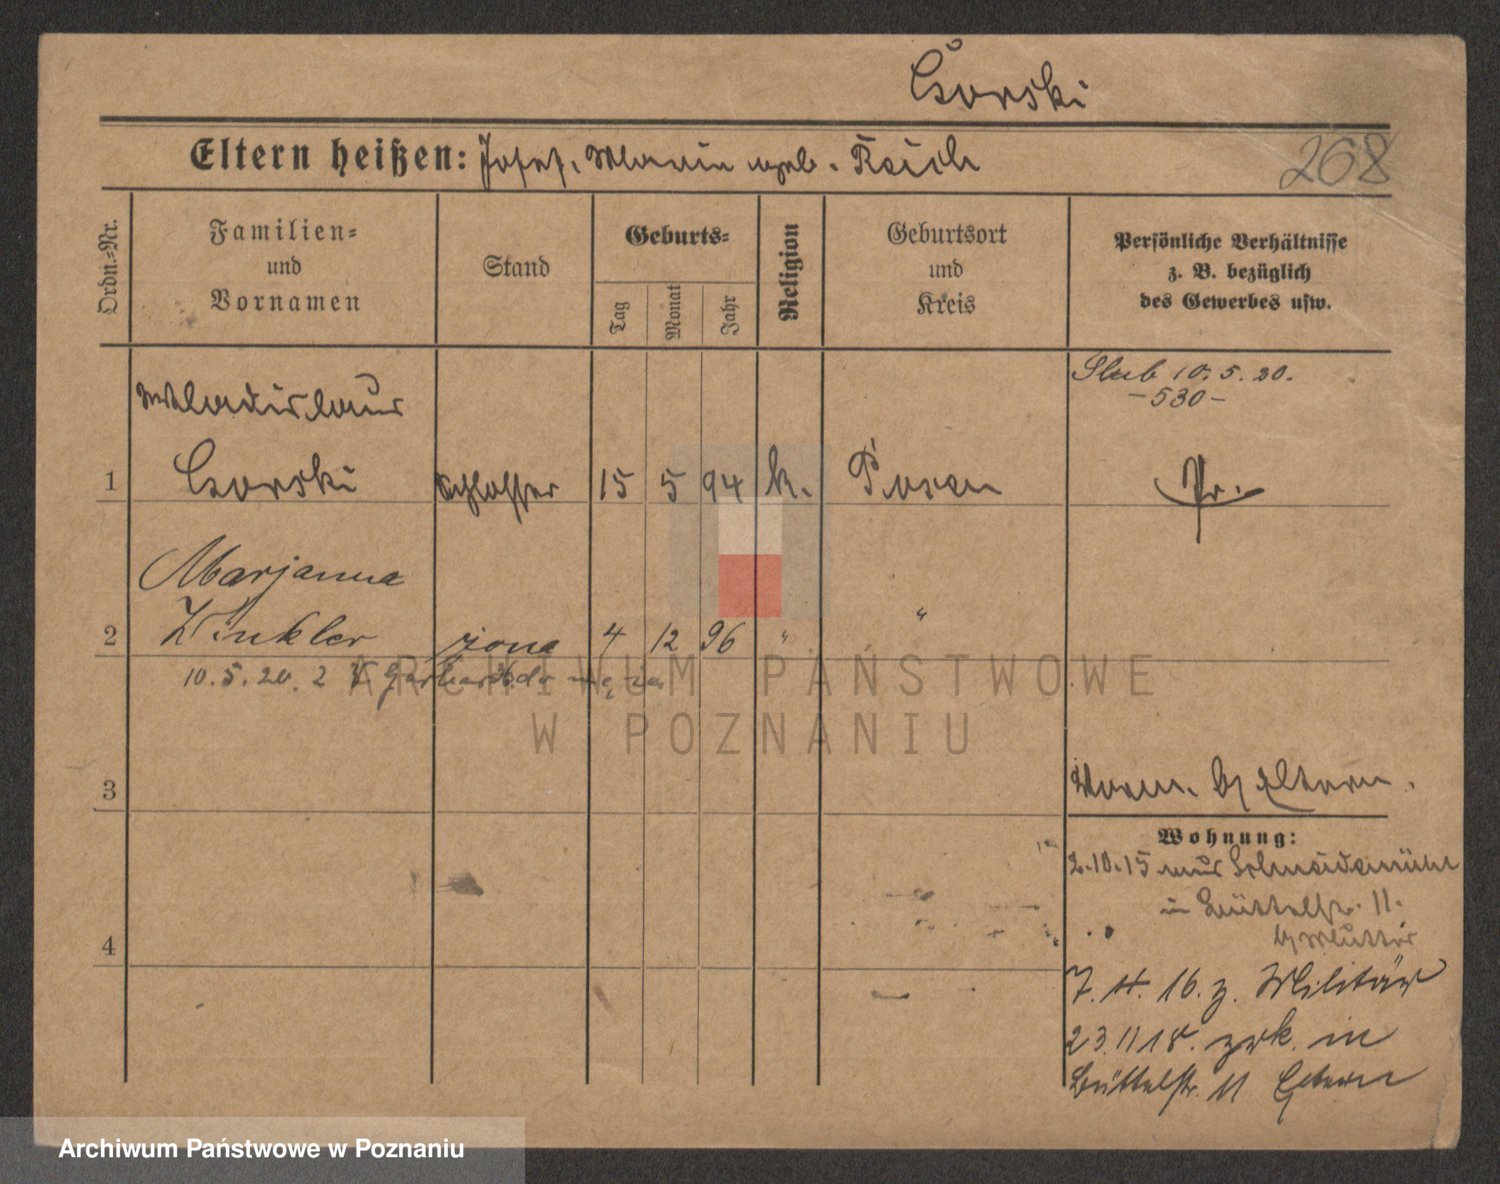 Gorski
Eltern heißen: Josef, Maria geb. Reich
268
Ordn.-Nr.
Familien-
und
Vornamen
Stand
Geburts-
Tag
Monat
Jahr
Religion
Geburtsort
und
Kreis
Persönliche Verhältnisse
z. B. bezüglich
des Gewerbes usw.
Ślub 10.5.20.
-530-
Wladislaus
1 Gorski Schlosser 15 5 94 k. Posen Pr.
Marjanna
2 Winkler żona 4 12 96 " "
10.5.20. 2
3
b/ Eltern.
Wohnung:
2.10.15 aus Schneidemühl
in Büttelstr. 11.
b/ Mutter
4
7.4.16. z. Militär
23.11.18. zrk. in
Büttelstr. 11 Eltern
ARCHIWUM PAŃSTWOWE
W POZNANIU
Archiwum Państwowe w Poznaniu